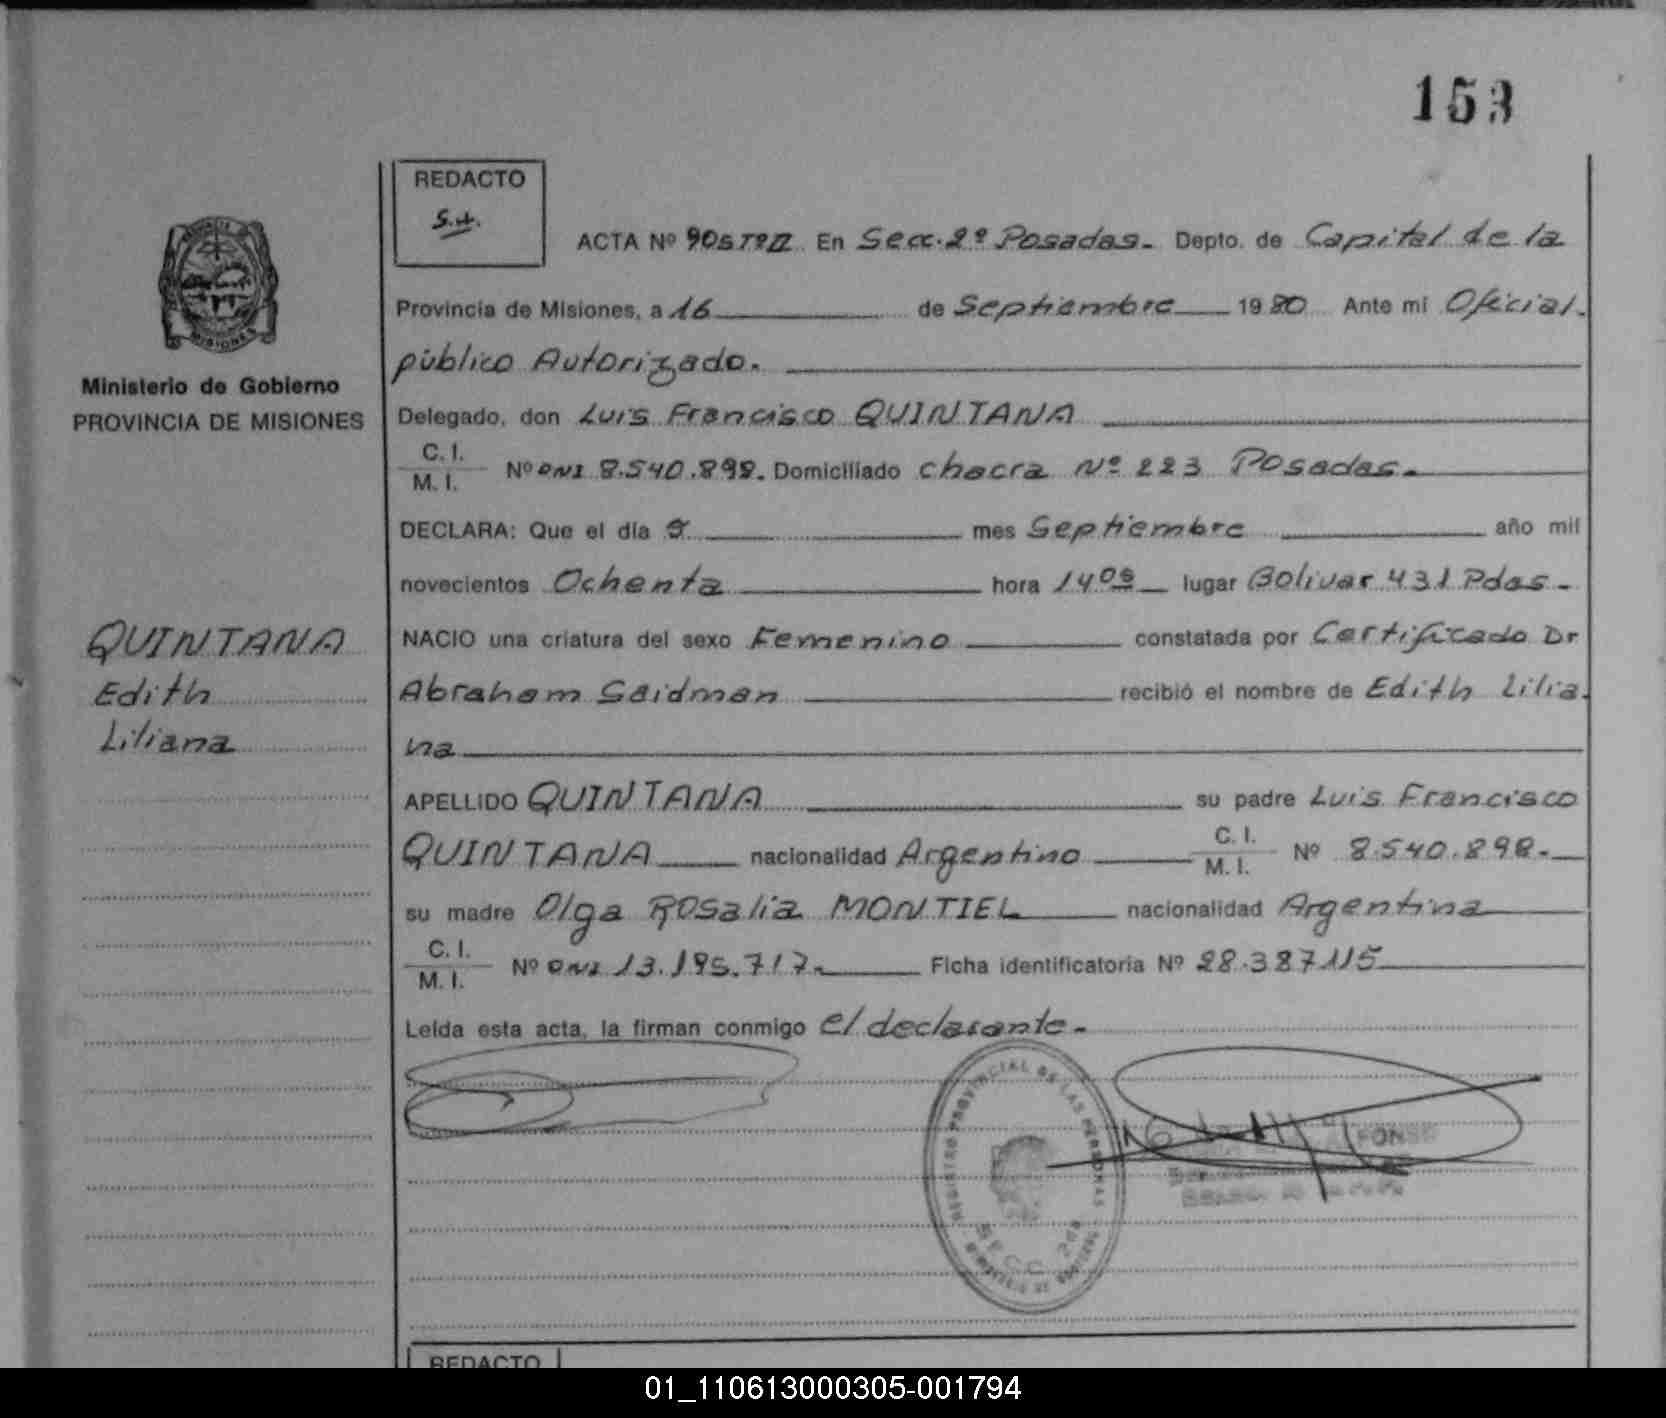 153
REDACTO
S.A.
ACTA Nº 905 Tº II En Secc. 2º Posadas. Depto. de Capital de la
Provincia de Misiones, a 16 de Septiembre 1980 Ante mi Oficial
público Autorizado.
Ministerio de Gobierno
PROVINCIA DE MISIONES
Delegado, don Luis Francisco QUINTANA
C. I.
M. I. Nº DNI 8.540.898. Domiciliado chacra Nº 223 Posadas.
DECLARA: Que el día 9 mes Septiembre año mil
novecientos Ochenta hora 14 05 lugar Bolivar 431 Pdas.
QUINTANA
Edith
Liliana
NACIO una criatura del sexo Femenino constatada por Certificado Dr
Abraham Saidman recibió el nombre de Edith Lilia
na
APELLIDO QUINTANA su padre Luis Francisco
QUINTANA nacionalidad Argentino C. I.
M. I. Nº 8.540.898.
su madre Olga Rosalia MONTIEL nacionalidad Argentina
C. I.
M. I. Nº DNI 13.195.717. Ficha identificatoria Nº 28.387.115
Leída esta acta, la firman conmigo el declarante.
REGISTRO PROVINCIAL DE LAS PERSONAS
SECC. 2da
REDACTO
01_110613000305-001794